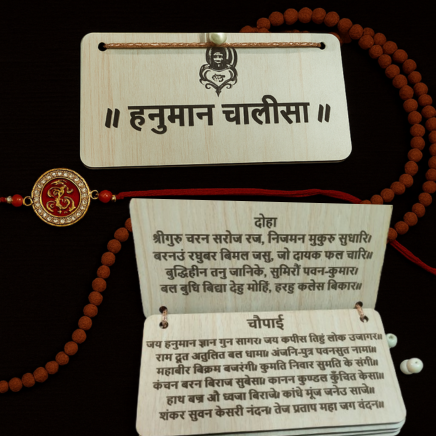 ॥ हनुमान चालीसा ॥
दोहा
श्रीगुरु चरन सरोज रज, निजमन मुकुरु सुधारि।
बरनउं रघुबर बिमल जसु, जो दायक फल चारि॥
बुद्धिहीन तनु जानिके, सुमिरौं पवन-कुमार।
बल बुधि बिद्या देहु मोहिं, हरहु कलेस बिकार॥
चौपाई
जय हनुमान ज्ञान गुन सागर। जय कपीस तिहुं लोक उजागर॥
राम दूत अतुलित बल धामा। अंजनि-पुत्र पवनसुत नामा॥
महाबीर बिक्रम बजरंगी। कुमति निवार सुमति के संगी॥
कंचन बरन बिराज सुबेसा। कानन कुण्डल कुँचित केसा॥
हाथ बज्र औ ध्वजा बिराजे। कांधे मूंज जनेउ साजे॥
शंकर सुवन केसरी नंदन। तेज प्रताप महा जग वंदन॥